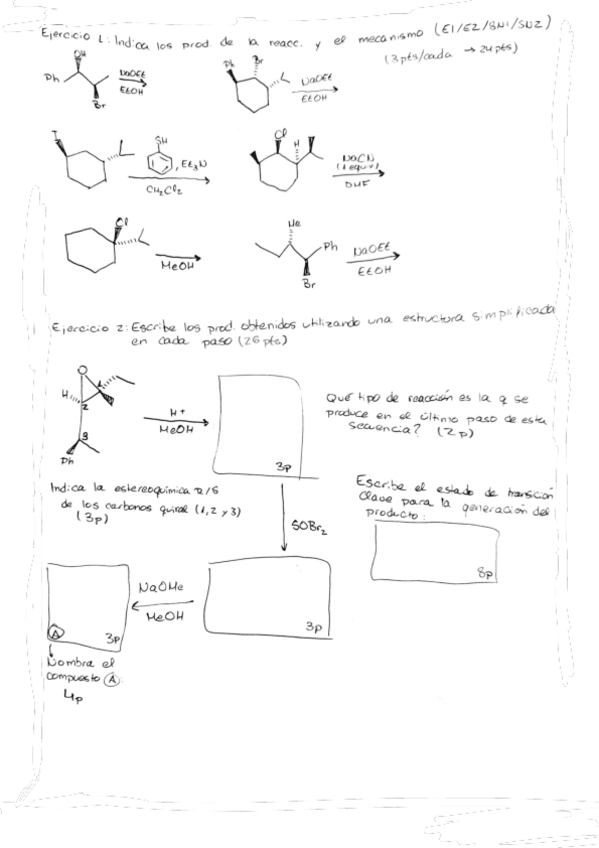 Ejercicio 1: Indica los prod. de la reacc. y el mecanismo (E1/E2/SN1/SN2)
(3pts/cada → 24pts)
OH
Ph
Br
NaOEt
EtOH
Ph
Br
NaOEt
EtOH
I
SH
, Et3N
CH2Cl2
Cl
H
NaCN
(1 equiv)
DMF
Cl
MeOH
Me
Ph
Br
NaOEt
EtOH
Ejercicio 2: Escribe los prod. obtenidos utilizando una estructura simplificada
en cada paso (26 pts)
O
H
1
2
3
Ph
H+
MeOH
3p
Qué tipo de reacción es la q se
produce en el último paso de esta
secuencia? (2p)
Indica la estereoquímica R/S
de los carbonos quiral (1, 2 y 3)
(3p)
SOBr2
Escribe el estado de transición
clave para la generación del
producto:
8p
A
3p
NaOMe
MeOH
3p
Nombra el
compuesto A:
4p